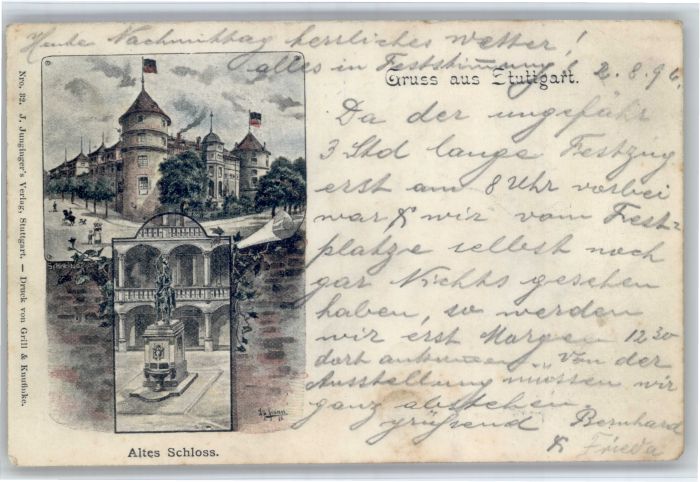 Heute Nachmittag herrliches Wetter!
alles in Feststimmung!
Gruss aus Stuttgart. 2.8.96.
Da der ungefähr
3 Std lange Festzug
erst am 8 Uhr vorbei
war & wir vom Fest-
platze selbst noch
gar Nichts gesehen
haben, so werden
wir erst Morgen 12 30
dort ankommen. Von der
Ausstellung müssen wir
ganz abstehen.
grüssend Bernhard
& Frieda
Altes Schloss.
Nro. 32. J. Junginger's Verlag, Stuttgart. — Druck von Grill & Knufinke.